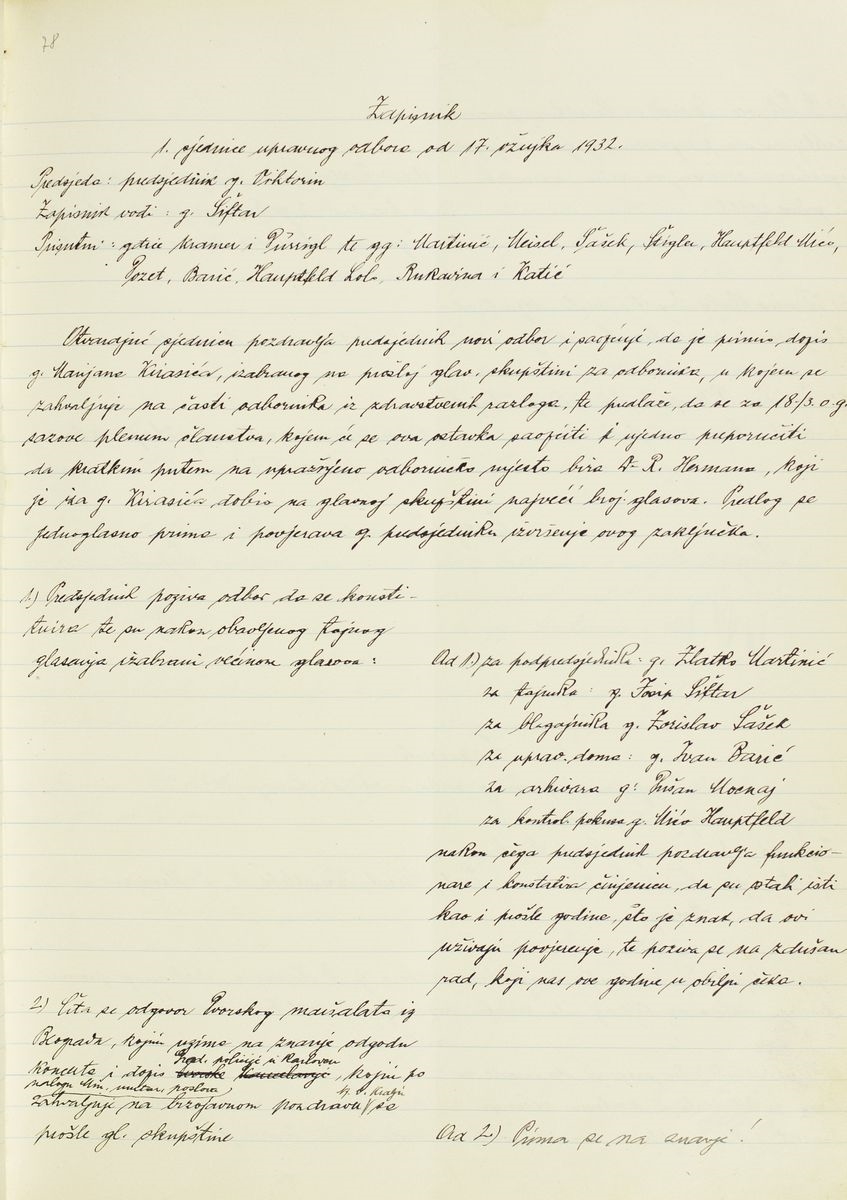 78
Zapisnik
1. sjednice upravnog odbora od 17. ožujka 1932.
Predsjeda: predsjednik g. Viktorin
Zapisnik vodi: g. Šiftar
Prisutni: gdice Kramer i te gg: Martinić, Meisel, Šašek, Štigler, Hauptfeld Mićo,
Pozet, Barić, Hauptfeld Lolo, Rukavina i Katić
Otvarajuć sjednicu pozdravlja predsjednik novi odbor i saopćuje, da je primio dopis
g. Marijana Kirasića, izabranog na prošloj glav. skupštini za odbornika, u kojem se
zahvaljuje na časti odbornika iz zdravstvenih razloga, te predlaže, da se za 18/3. o.g.
sazove plenum članstva, kojem će se ova ostavka saopćiti i ujedno preporučiti
da kratkim putem na upražnjeno odborničko mjesto bira Dr R. Hermana, koji
je iza g. Kirasića dobio na glavnoj skupštini najveći broj glasova. Predlog se
jednoglasno prima i povjerava g. predsjedniku izvršenje ovog zaključka.
1.) Predsjednik poziva odbor da se konsti-
tuira te su nakon obavljenog tajnog
glasanja izabrani većinom glasova:
Ad 1.) za podpredsjednika: g. Zlatko Martinić
za tajnika: g. Josip Šiftar
za blagajnika g. Zorislav Šašek
za uprav. doma: g. Ivan Barić
za arhivara g: Dušan Mocnaj
za kontrol. pokusa g. Mićo Hauptfeld
nakon čega predsjednik pozdravlja funkcio-
nare i konstatira činjenicu, da su ostali isti
kao i prošle godine, što je znak, da ovi
uživaju povjerenje, te poziva se na zdušan
rad, koji nas ove godine u obilju čeka.
2) Čita se odgovor Dvorskog maršalata iz
Beograda, kojim uzima na znanje odgodu
Grad. policije u Karlovcu
koncerta i dopis dvorske kancelarije, kojim po
nalogu Min. unutar. poslova, Nj. V. Kralju
zahvaljuje na brzojavnom pozdravu sa
prošle gl. skupštine
Ad 2.) Prima se na znanje!